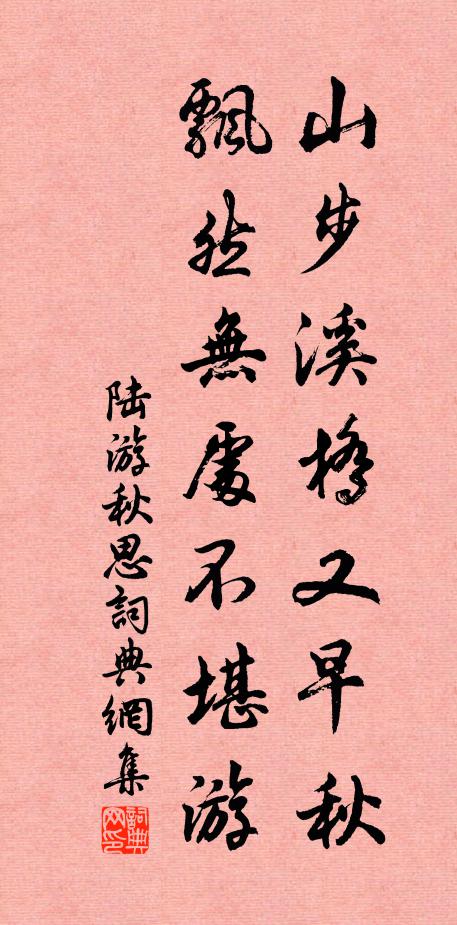 山步溪橋又早秋
飄然無處不堪游
陆游秋思詞典網集
詞典网印